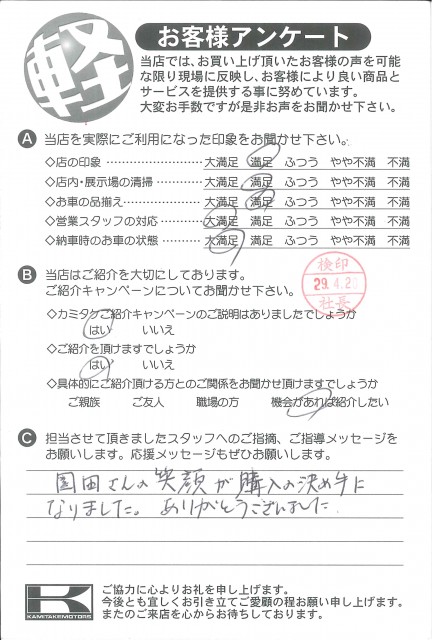 軽
お客様アンケート
当店では、お買い上げ頂いたお客様の声を可能
な限り現場に反映し、お客様により良い商品と
サービスを提供する事に努めています。
大変お手数ですが是非お声をお聞かせ下さい。
A 当店を実際にご利用になった印象をお聞かせ下さい。
◇店の印象 大満足 満足 ふつう やや不満 不満
◇店内・展示場の清掃 大満足 満足 ふつう やや不満 不満
◇お車の品揃え 大満足 満足 ふつう やや不満 不満
◇営業スタッフの対応 大満足 満足 ふつう やや不満 不満
◇納車時のお車の状態 大満足 満足 ふつう やや不満 不満
B 当店はご紹介を大切にしております。
ご紹介キャンペーンについてお聞かせ下さい。
検印
29.4.28
社長
◇カミタケご紹介キャンペーンのご説明はありましたでしょうか
はい いいえ
◇ご紹介を頂けますでしょうか
はい いいえ
◇具体的にご紹介頂ける方とのご関係をお聞かせ頂けますでしょうか
ご親族 ご友人 職場の方 機会があれば紹介したい
C 担当させて頂きましたスタッフへのご指摘、ご指導メッセージを
お願いします。応援メッセージもぜひお願いします。
園田さんの笑顔が購入の決め手に
なりました。ありがとうございました
K
KAMITAKEMOTORS
ご協力に心よりお礼を申し上げます。
今後とも宜しくお引き立てご愛顧の程お願い申し上げます。
またのご来店を心からお待ちしております。